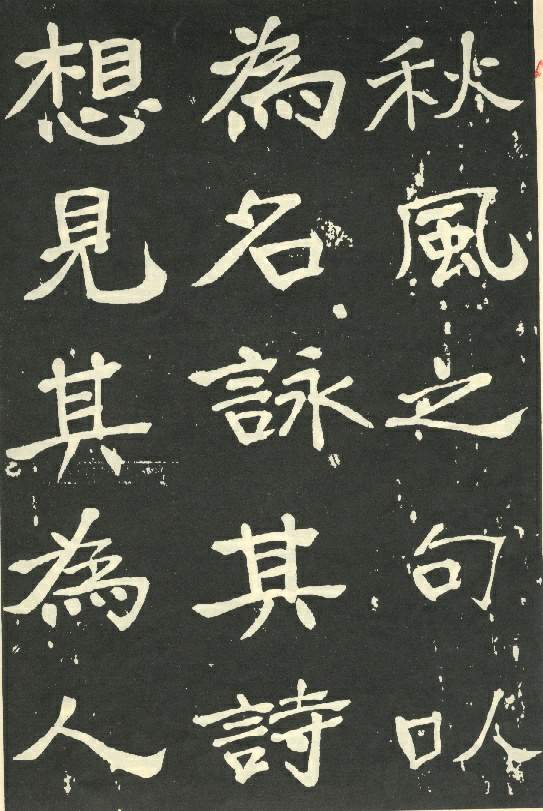 秋風之句以
為名詠其詩
想見其為人